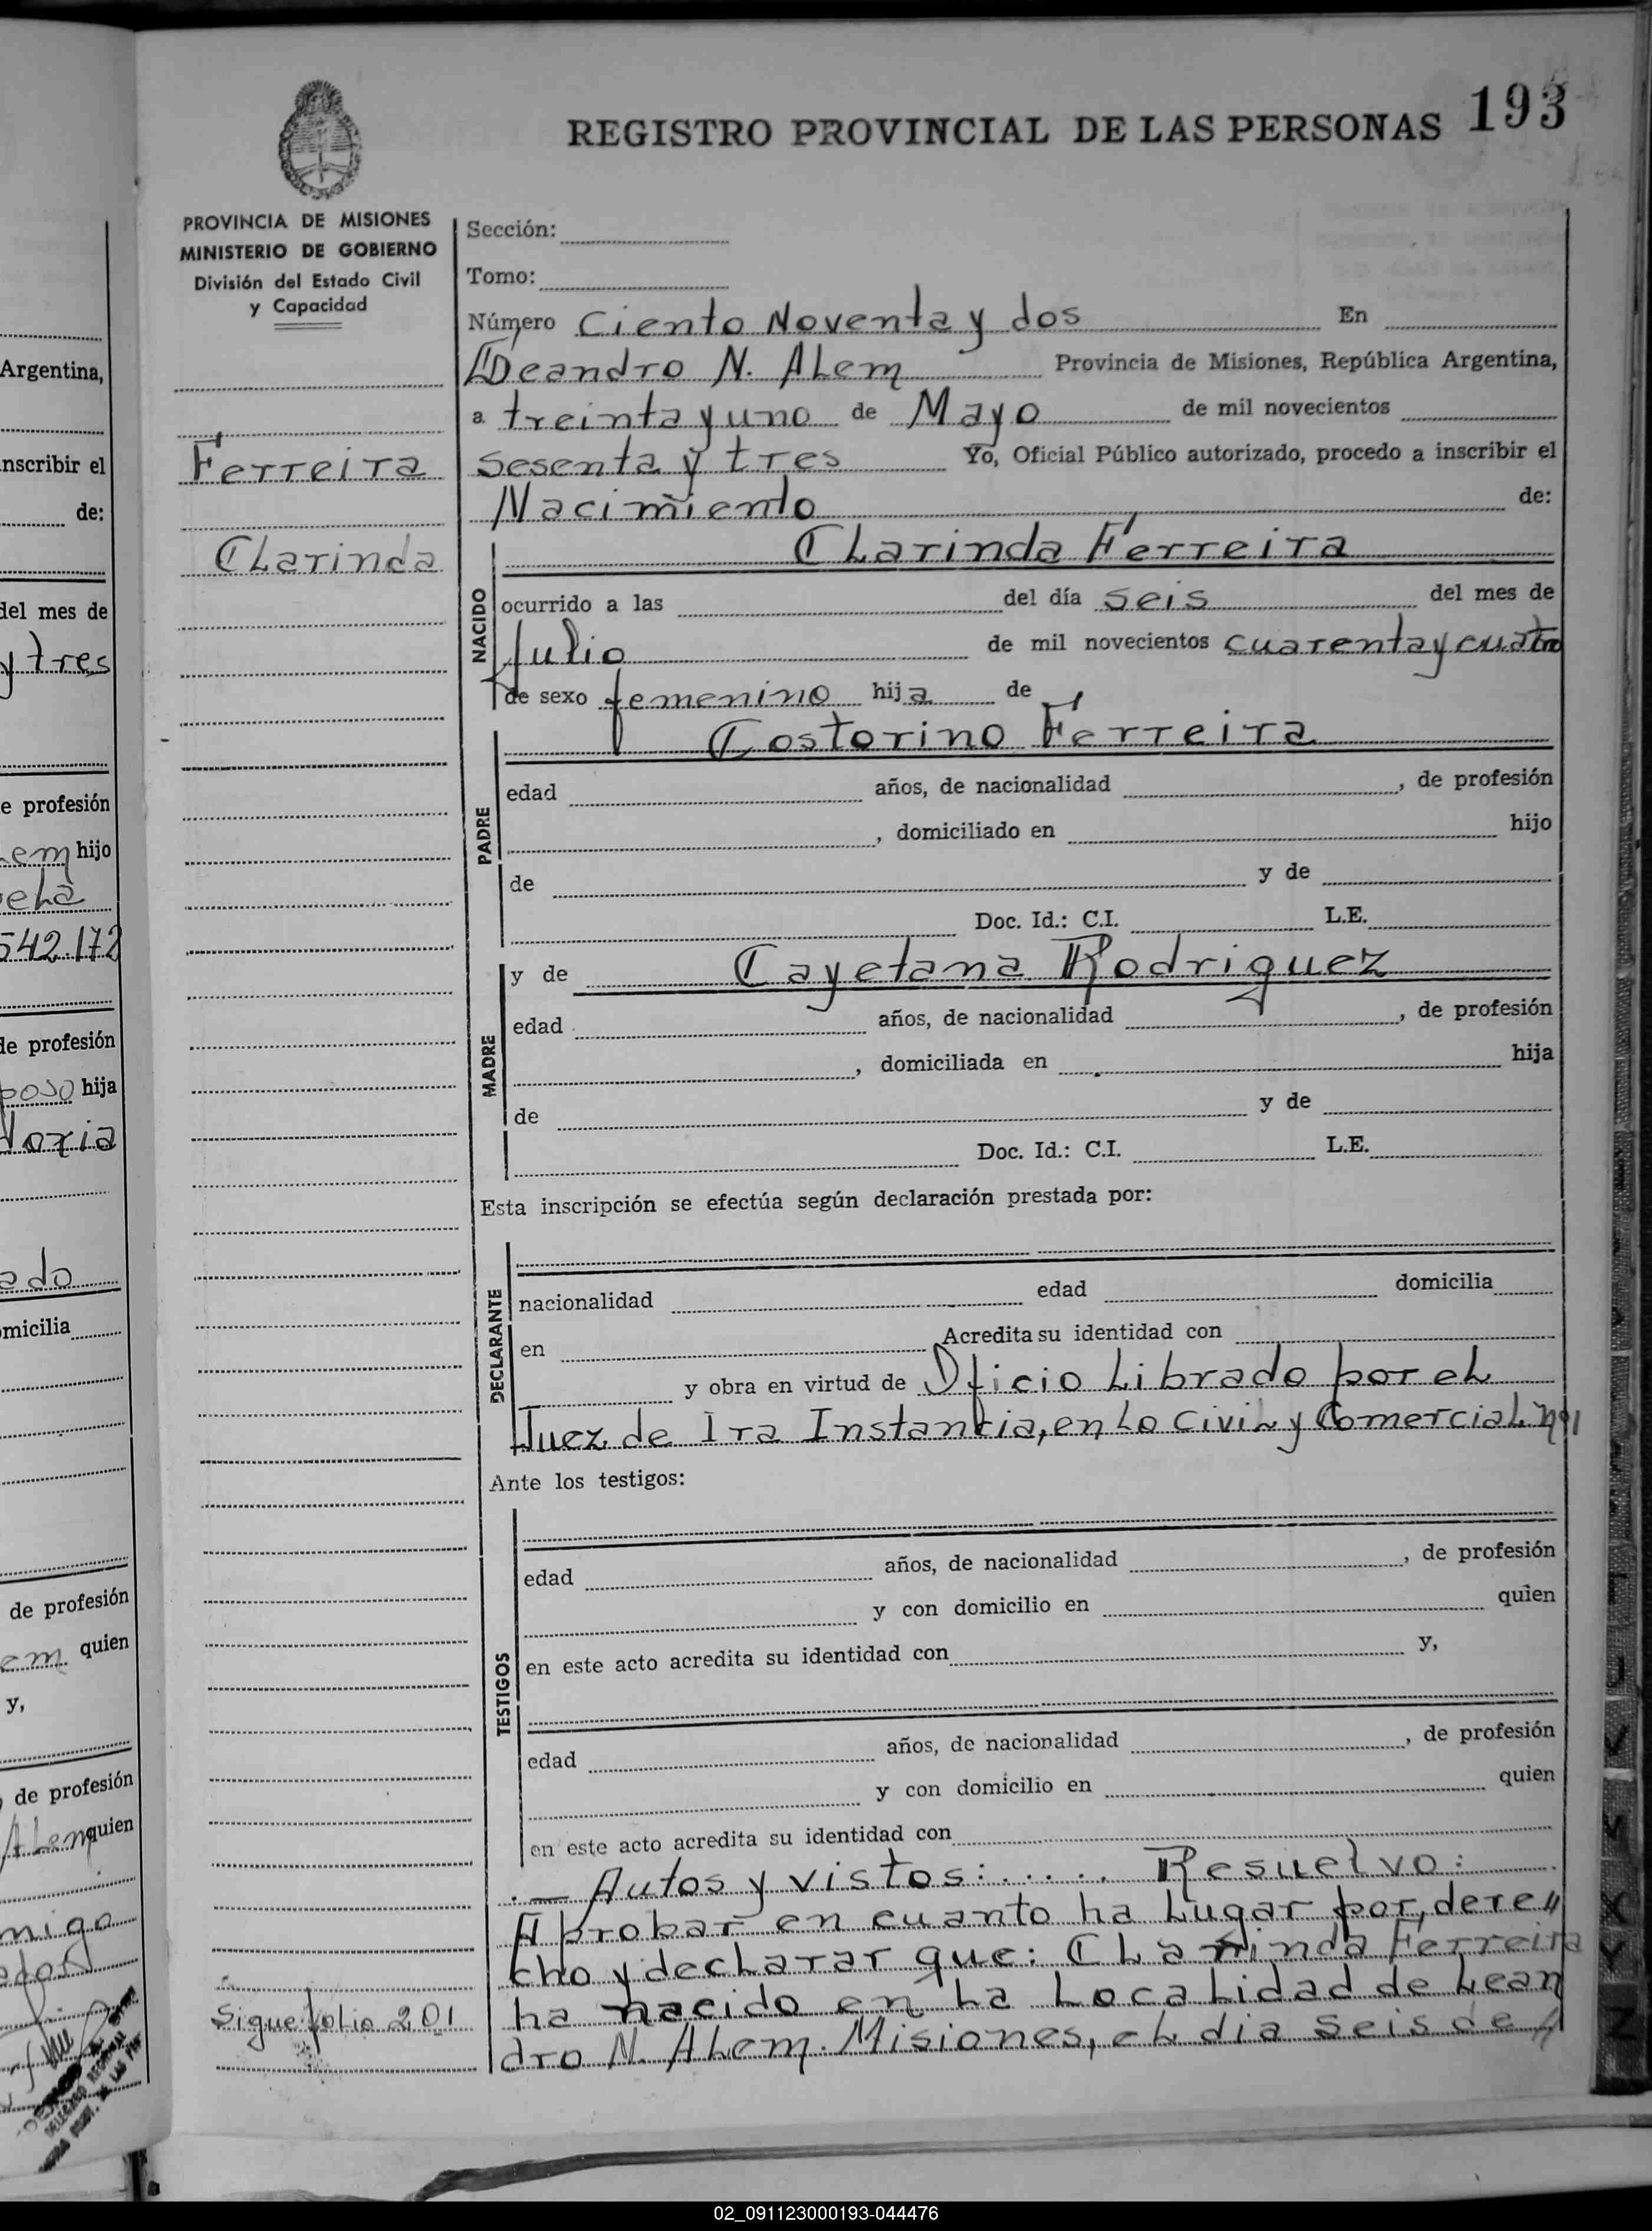 REGISTRO PROVINCIAL DE LAS PERSONAS 193
PROVINCIA DE MISIONES
MINISTERIO DE GOBIERNO
División del Estado Civil
y Capacidad
Ferreira
Clarinda
Sigue folio 201
Sección:
Tomo:
Número Ciento Noventa y dos En
Leandro N. Alem Provincia de Misiones, República Argentina,
a treinta y uno de Mayo de mil novecientos
sesenta y tres Yo, Oficial Público autorizado, procedo a inscribir el
Nacimiento de:
NACIDO
Clarinda Ferreira
ocurrido a las del día seis del mes de
Julio de mil novecientos cuarenta y cuatro
de sexo femenino hija de
PADRE
Costorino Ferreira
edad años, de nacionalidad , de profesión
, domiciliado en hijo
de y de
Doc. Id.: C.I. L.E.
MADRE
y de Cayetana Rodriguez
edad años, de nacionalidad , de profesión
, domiciliada en hija
de y de
Doc. Id.: C.I. L.E.
Esta inscripción se efectúa según declaración prestada por:
DECLARANTE
nacionalidad edad domicilia
en Acredita su identidad con
y obra en virtud de Oficio Librado por el
Juez de 1ra Instancia, en Lo Civil y Comercial nº1
Ante los testigos:
TESTIGOS
edad años, de nacionalidad , de profesión
y con domicilio en quien
en este acto acredita su identidad con y,
edad años, de nacionalidad , de profesión
y con domicilio en quien
en este acto acredita su identidad con
.— Autos y vistos: ..... Resuelvo:
Aprobar en cuanto ha Lugar por dere„
cho y declarar que: Clarinda Ferreira
ha nacido en La Localidad de Lean
dro N. Alem. Misiones, el dia seis de
Argentina,
inscribir el
de:
del mes de
y tres
de profesión
hijo
542.172
de profesión
hija
domicilia
de profesión
quien
y,
de profesión
Alem quien
02_091123000193-044476